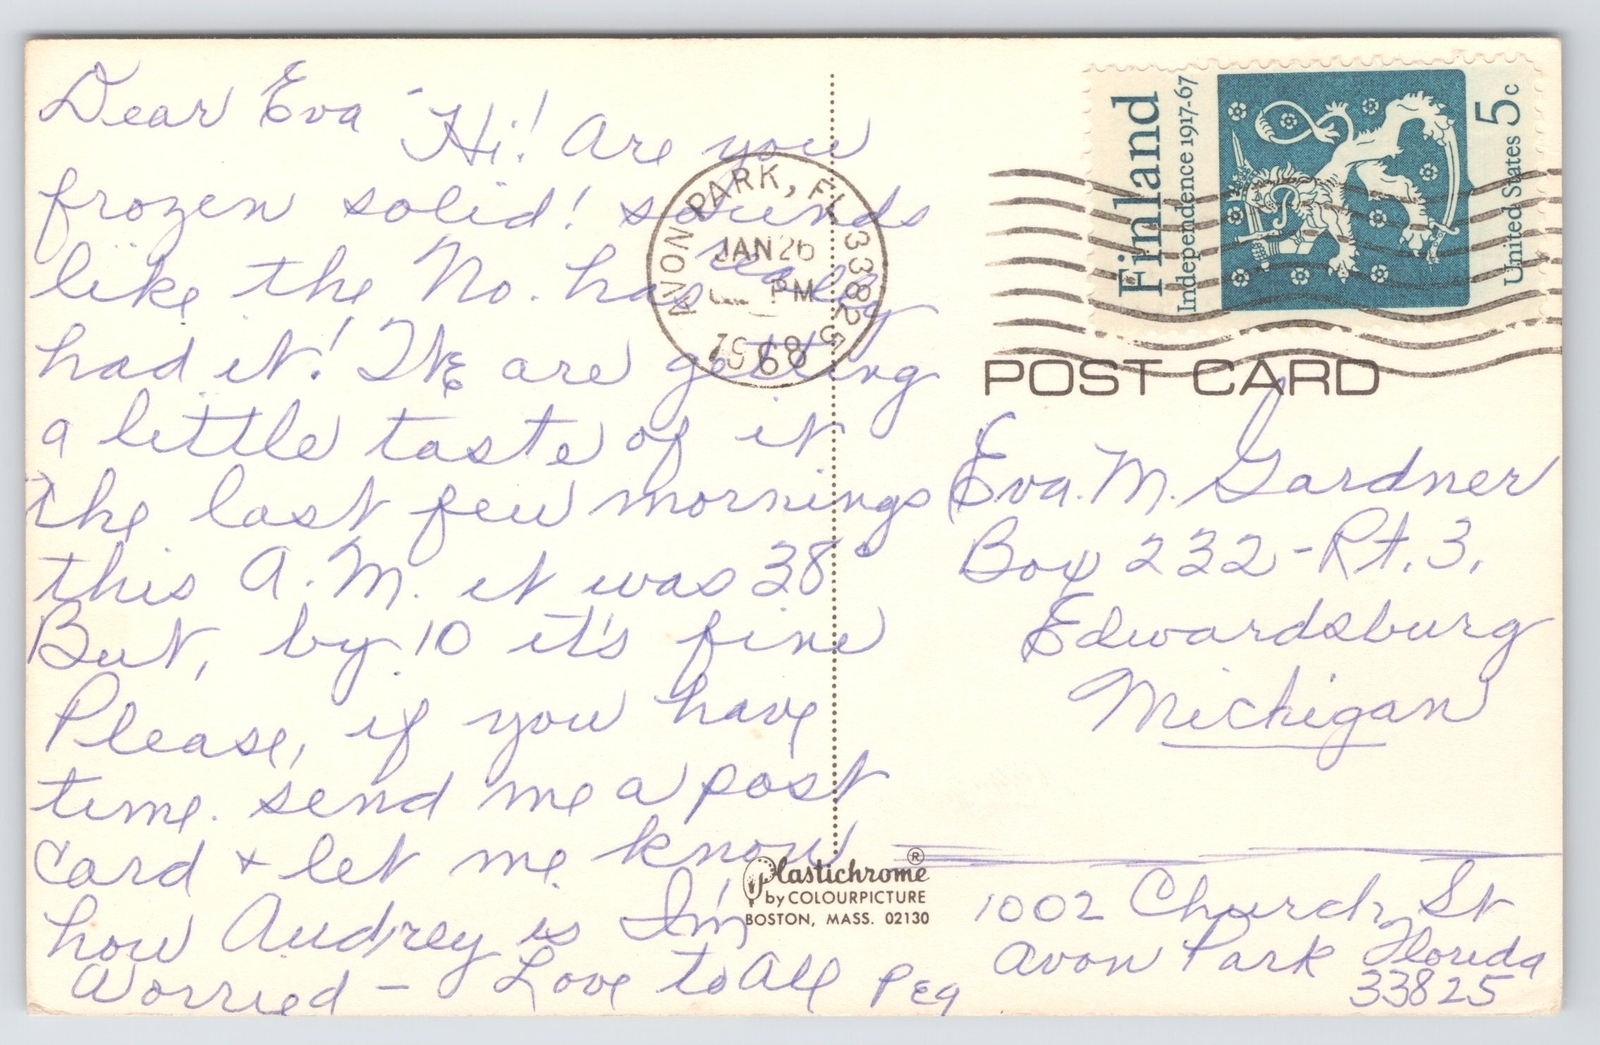 Dear Eva Hi! Are you
frozen solid! sounds
like the No. has really
had it! We are getting
a little taste of it
the last few mornings
this A.M. it was 38°
But, by 10 it's fine
Please, if you have
time. send me a post
card + let me know
how Audrey is I'm
Worried - Love to All Peg
AVON PARK, FL 33825
JAN 26
PM
1968
Finland
Independence 1917-67
United States 5c
POST CARD
Eva. M. Gardner
Box 232 - Rt. 3.
Edwardsburg
Michigan
Plastichrome ®
by COLOURPICTURE
BOSTON, MASS. 02130
1002 Church St
Avon Park Florida
33825